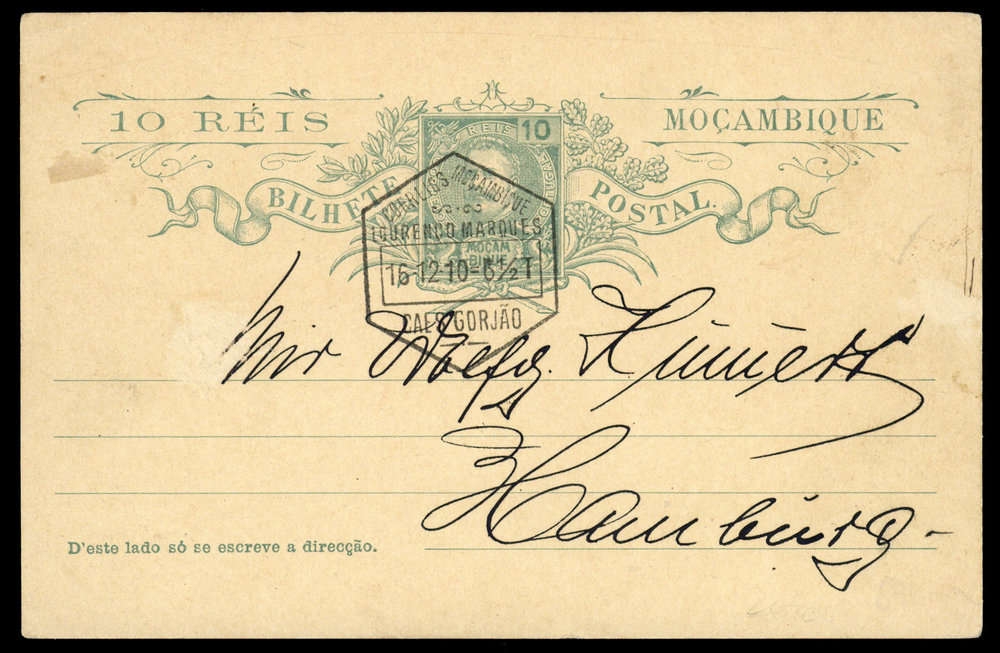 10 RÉIS
MOÇAMBIQUE
BILHETE POSTAL.
REIS 10
MOÇAM
BIQUE
CORREIOS MOÇAMBIQUE
LOURENÇO MARQUES
16-12-10-6½T
CAES GORJÃO
Wolfg.
Hamburg-
D'este lado só se escreve a direcção.